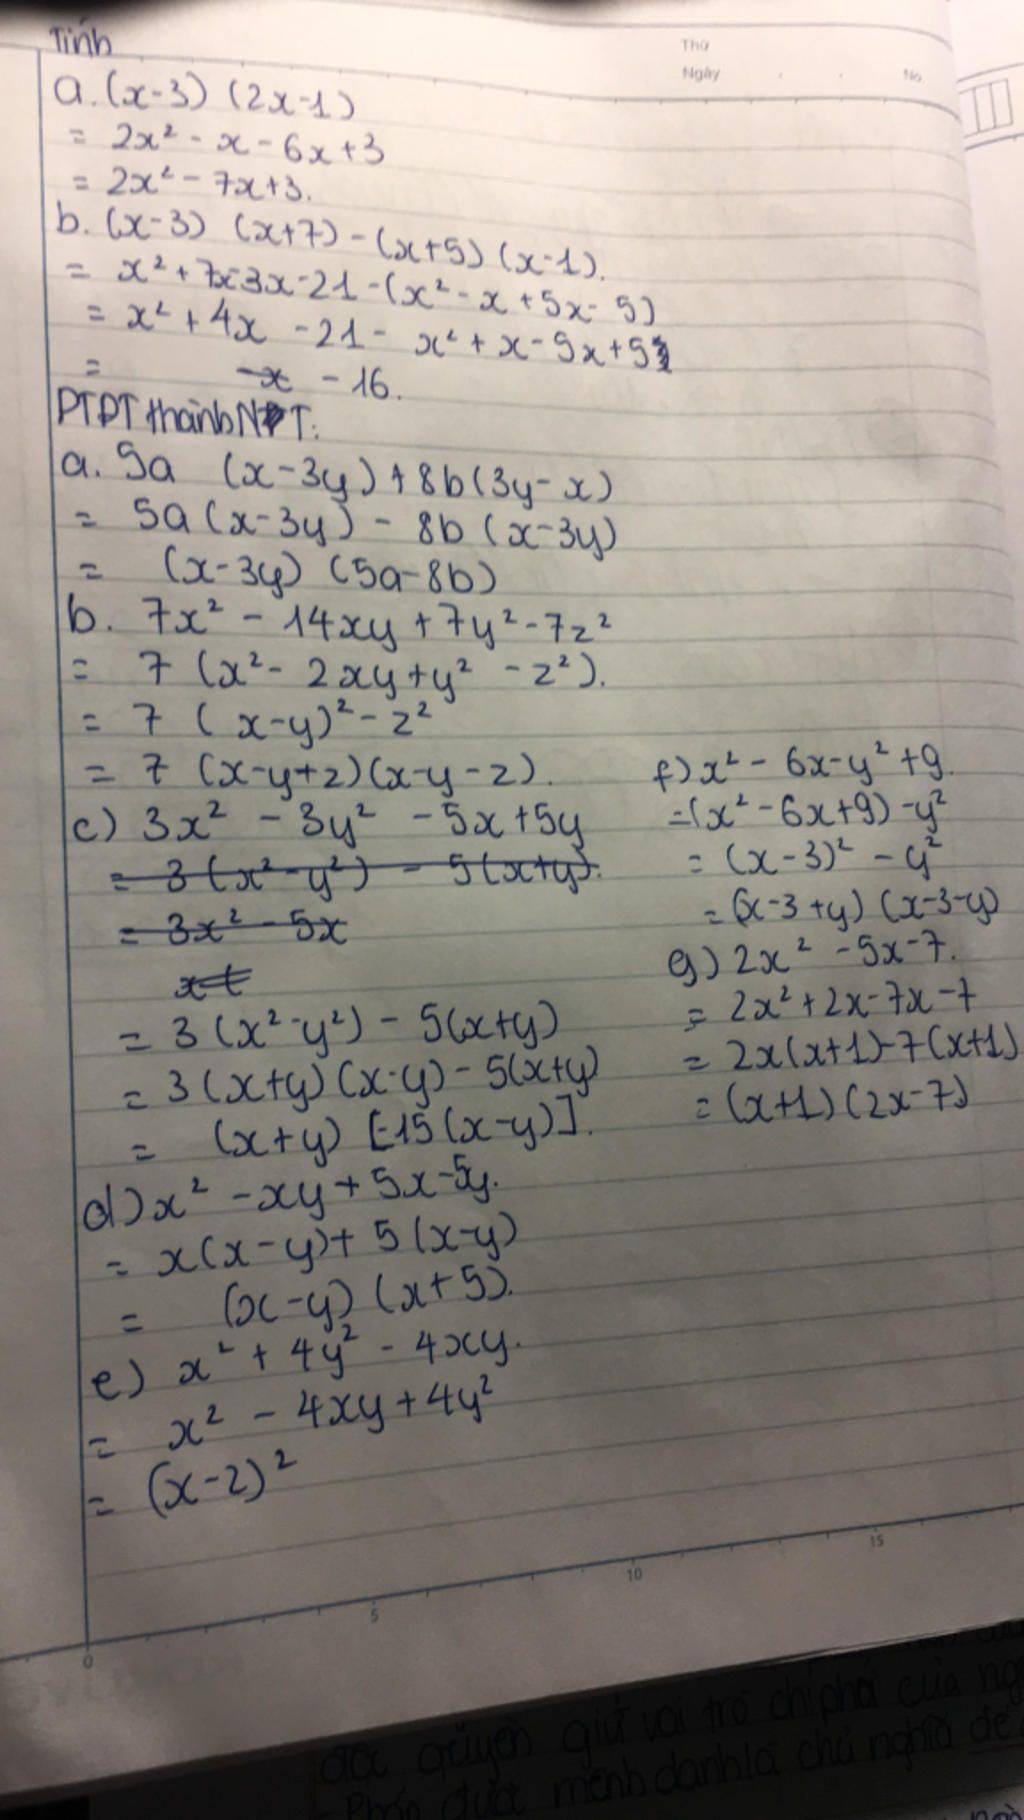 Tính
Thứ
Ngày
No
a. (x-3) (2x-1)
= 2x² - x - 6x+3
= 2x² - 7x+3.
b. (x-3) (x+7) - (x+5) (x-1).
= x² + 7x-3x-21-(x² - x + 5x- 5)
= x² + 4x - 21 - x² + x - 5x+5
= -x - 16.
PTĐT thành NT:
a. 5a (x-3y) + 8b(3y-x)
= 5a(x-3y) - 8b (x-3y)
= (x-3y) (5a-8b)
b. 7x² - 14xy + 7y² - 7z²
= 7 (x² - 2xy+y² - z²).
= 7 ( x-y)² - z²
= 7 (x-y+z)(x-y-z).
c) 3x² - 3y² - 5x+5y
= 3 (x² - y²) - 5(x+y).
= 3x² - 5x
= 3 (x² -y²) - 5(x+y)
= 3 (x+y) (x-y) - 5(x+y)
= (x+y) [-15(x-y)].
d) x² - xy + 5x-5y.
= x(x-y)+ 5 (x-y)
= (x-y) (x+5).
e) x² + 4y² - 4xy.
= x² - 4xy+4y²
= (x-2)²
f) x² - 6x-y² +9.
=(x² -6x+9) -y²
= (x-3)² - y²
= (x-3 +y) (x-3-y)
g) 2x² -5x-7.
= 2x² + 2x-7x-7
= 2x(x+1)-7(x+1)
= (x+1) (2x-7)
0 5 10 15
quyền giữ vai trò chi phối của
được mệnh danh là chủ nghĩa đế